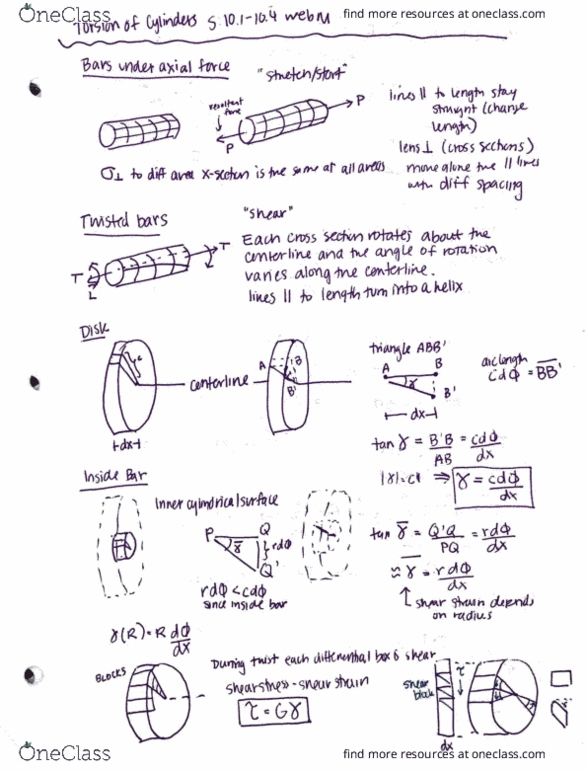 OneClass
find more resources at oneclass.com
Torsion of Cylinders 5.10.1-10.4 webnu
Bars under axial force
"stretch/start"
resultant force
P
P
lines || to length stay straight (change length)
lens ⊥ (cross sections) move alone the || lines with diff spacing
σ⊥ to diff area x-section is the same at all areas
Twisted bars
"shear"
T
T
L
Each cross section rotates about the
centerline and the angle of rotation
varies along the centerline.
lines || to length turn into a helix
Disk
c
centerline
A
B
B'
triangle ABB'
A
B
γ
B'
⊢ dx ⊣
arclength
cdϕ = BB'
⊢dx⊣
tan γ = B'B/AB = cdϕ/dx
⇒ γ = cdϕ/dx
Inside Bar
Inner cylindrical surface
P
Q
γ̄
} rdϕ
Q'
rdϕ < cdϕ
since inside bar
tan γ̄ = Q'Q/PQ = rdϕ/dx
≈ γ = rdϕ/dx
↑ shear strain depends
on radius
γ(R) = R dϕ/dx
BLOCKS
During twist each differential box 6 shear
shearstress - shear strain
τ = Gγ
shear block
τ
dx
OneClass
find more resources at oneclass.com